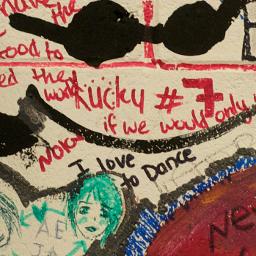 have
the
tood to
ed they
work
Rücky #7
if we would only
NOK
I love
to Dance
AE
JA
Ne